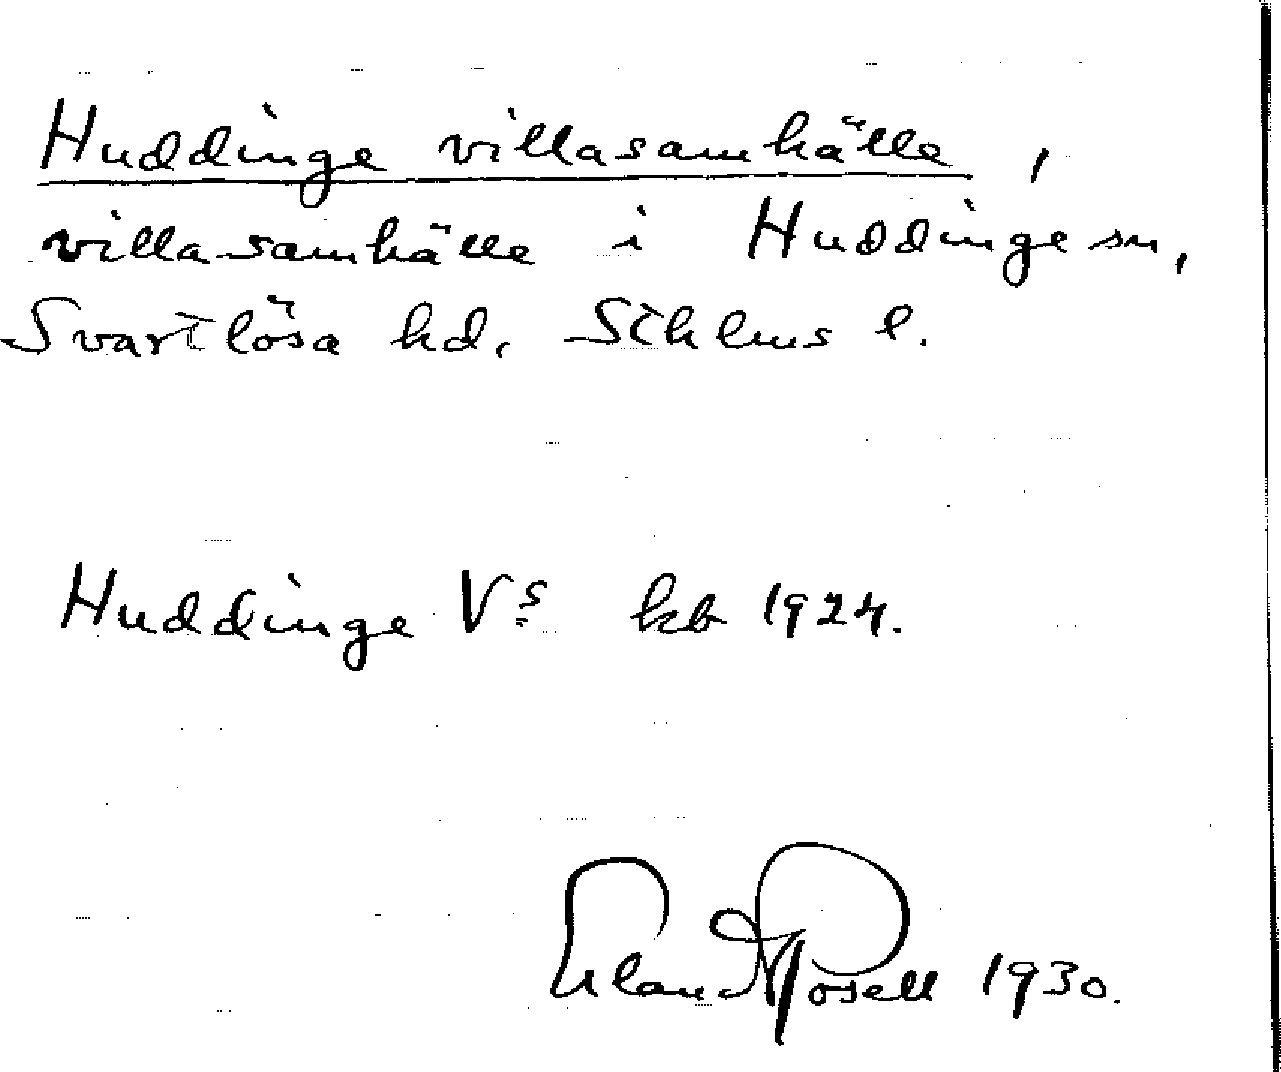 Huddinge villasamhälle,
villasamhälle i Huddinge sn,
Svartlösa hd, Sthlms l.
Huddinge Vs kb 1924.
Erland Rosell 1930.